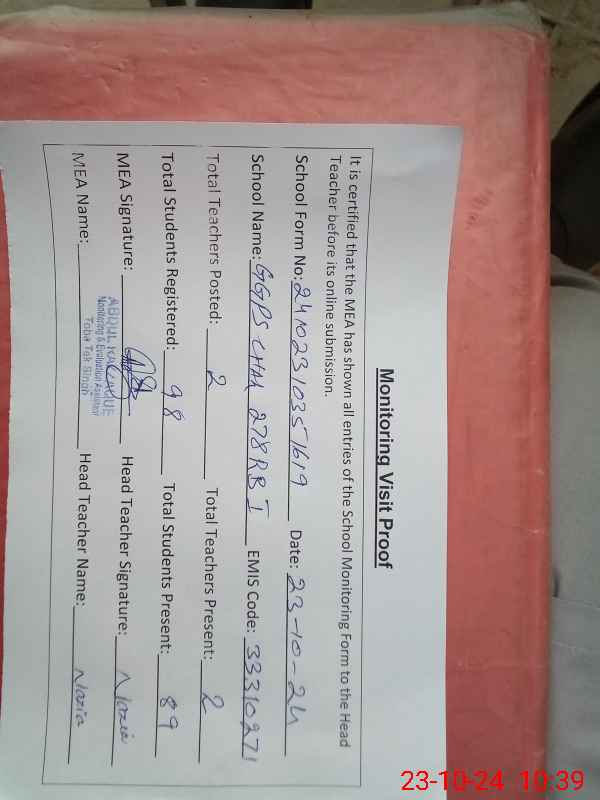 Monitoring Visit Proof
It is certified that the MEA has shown all entries of the School Monitoring Form to the Head
Teacher before its online submission.
School Form No: 24102310351619 Date: 23-10-24
School Name: GGPS CHAK 278 RB I EMIS Code: 33310271
Total Teachers Posted: 2 Total Teachers Present: 2
Total Students Registered: 98 Total Students Present: 89
MEA Signature: Head Teacher Signature: Nazia
ABDUL KHALIQUE
Monitoring & Evaluation Assistant
Toba Tek Singh
MEA Name: Head Teacher Name: Nazia
23-10-24 10:39